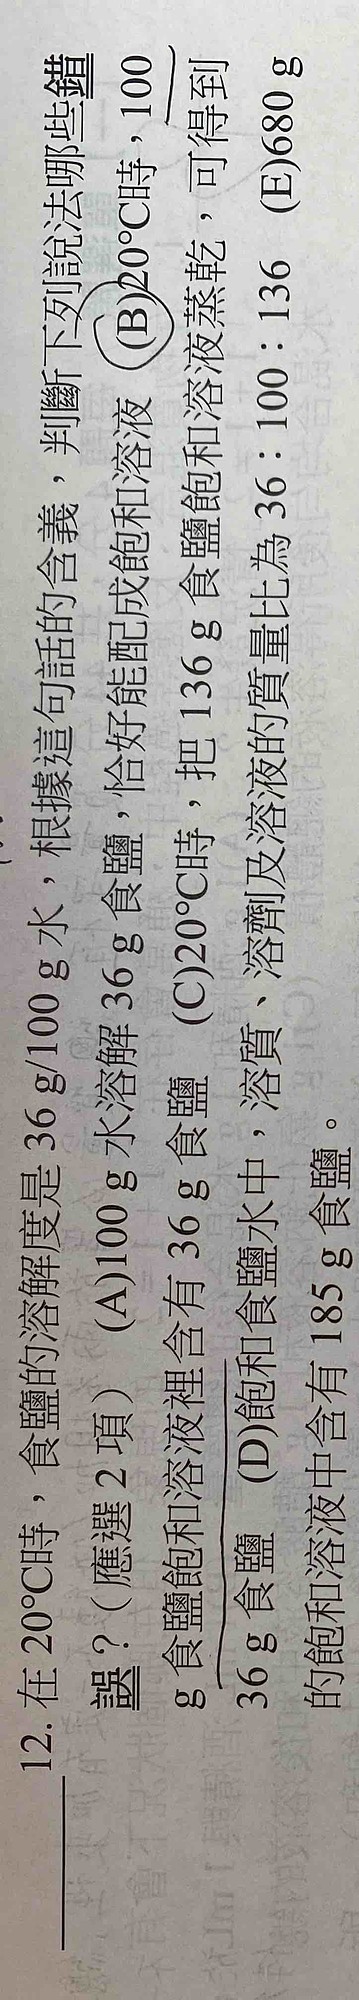 12. 在 20°C時，食鹽的溶解度是 36 g/100 g 水，根據這句話的含義，判斷下列說法哪些錯
誤？（應選 2 項） (A)100 g 水溶解 36 g 食鹽，恰好能配成飽和溶液 (B)20°C時，100
g 食鹽飽和溶液裡含有 36 g 食鹽 (C)20°C時，把 136 g 食鹽飽和溶液蒸乾，可得到
36 g 食鹽 (D)飽和食鹽水中，溶質、溶劑及溶液的質量比為 36：100：136 (E)680 g
的飽和溶液中含有 185 g 食鹽。